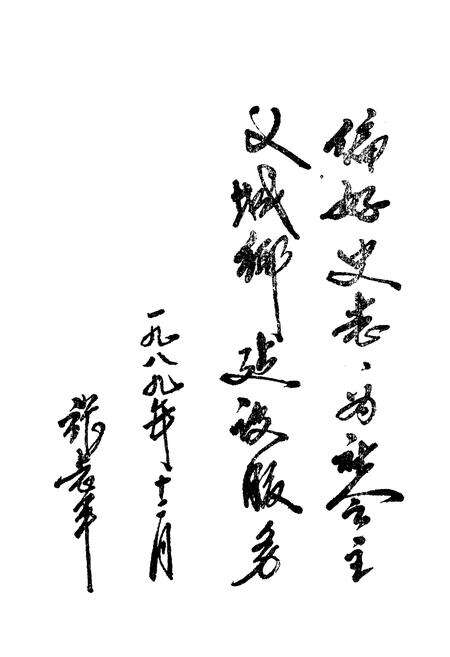 编好史志、为社会主
义城鄉建设服务
一九八九年十二月